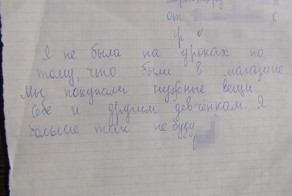 от
Я не была на уроках по
тому, что были в магазине.
Мы покупали нужные вещи
себе и другим девчёнкам. Я
больше так не буду